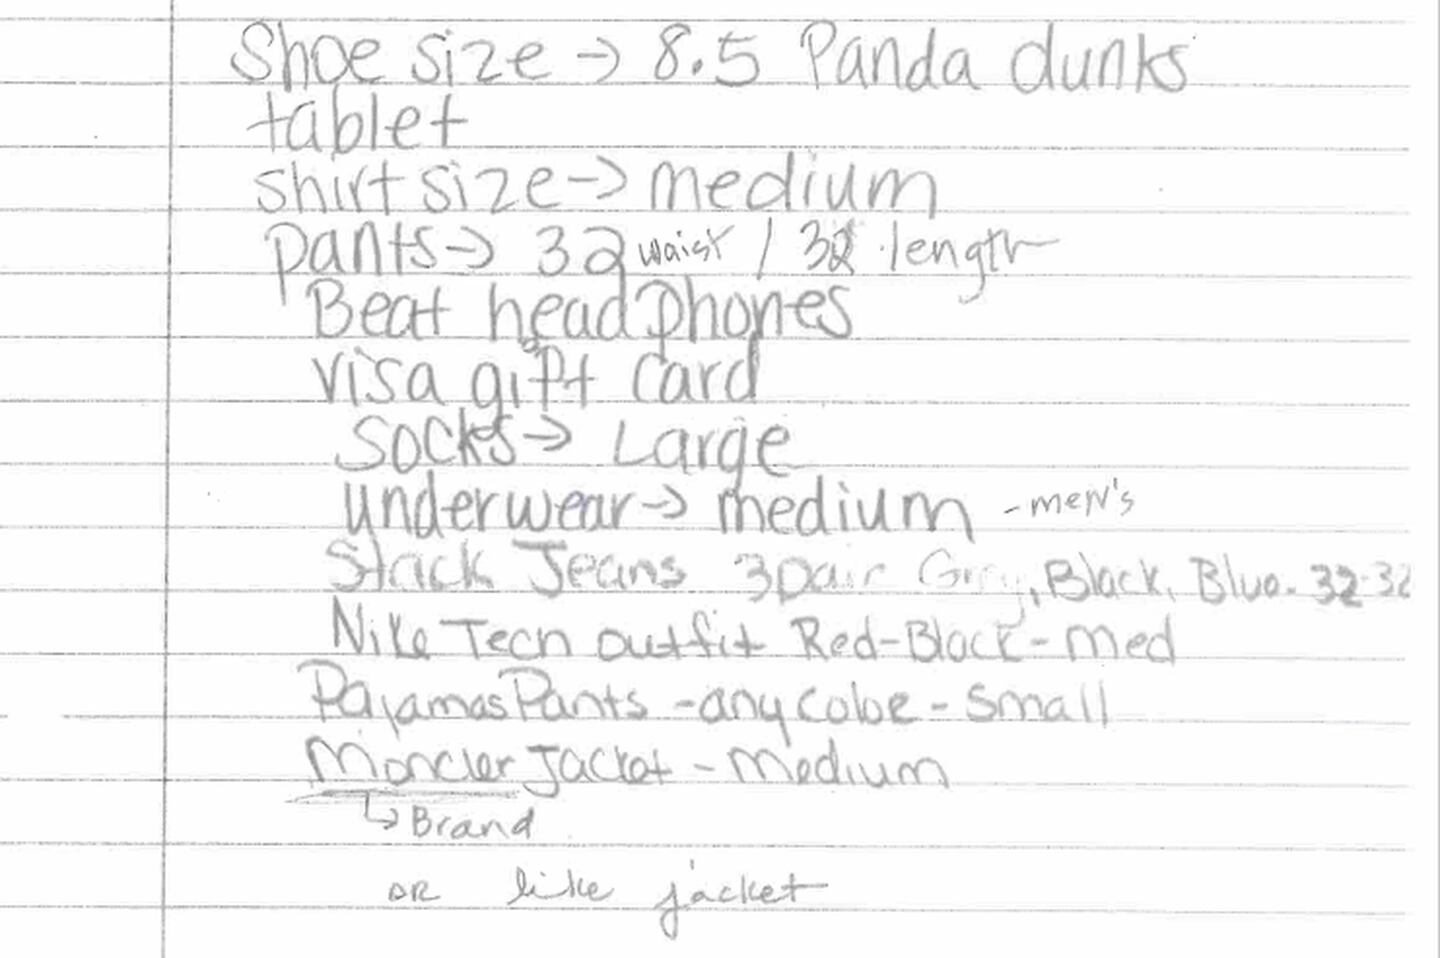 Shoe size → 8.5 Panda dunks
tablet
shirt size → medium
pants → 32 waist / 32 length
Beat headphones
visa gift card
Socks → Large
underwear → medium - men's
Stack Jeans 3 pair Grey, Black, Blue. 32-32
Nike Tech outfit Red-Black-Med
Pajamas Pants - any color - Small
Moncler Jacket - Medium
↳ Brand
OR like jacket